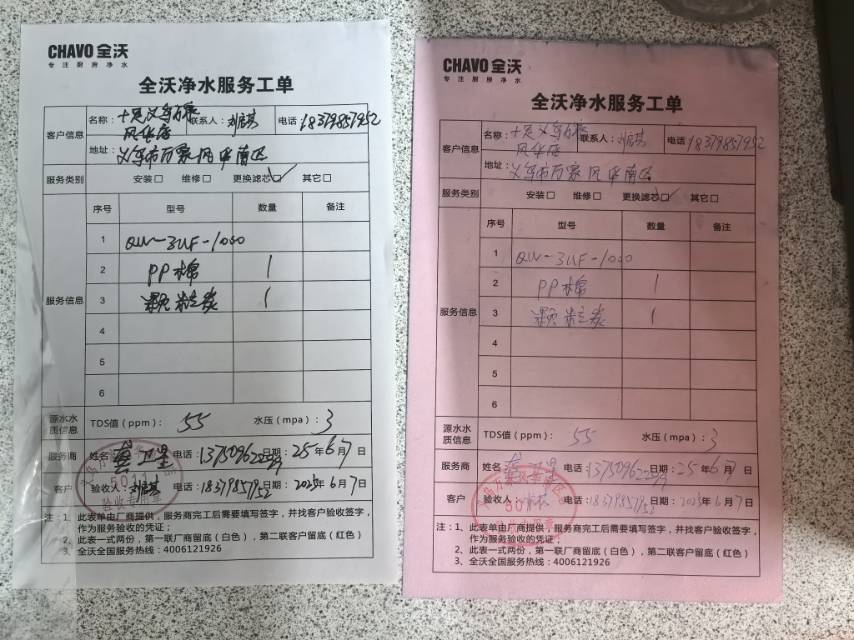 CHAVO 全沃
专注厨房净水
全沃净水服务工单
客户信息
名称：十足义乌万豪风华店 联系人：刘启芬 电话 18379857952
地址：义乌市万豪风华南区
服务类别 安装□ 维修□ 更换滤芯☑ 其它□
服务信息
序号 型号 数量 备注
1 QW-3UF-1000
2 PP棉 1
3 颗粒炭 1
4
5
6
源水水质信息 TDS值（ppm）：55 水压（mpa）：3
服务商 姓名 龚卫星 电话： 日期：25年6月7日
客户 验收人： 电话：18379857952 2025年6月7日
注：1、此表单由厂商提供，服务商完工后需要填写签字，并找客户验收签字，
作为服务验收的凭证；
2、此表一式两份，第一联厂商留底（白色），第二联客户留底（红色）
3、全沃全国服务热线：4006121926
CHAVO 全沃
专注厨房净水
全沃净水服务工单
客户信息
名称：十足义乌万豪风华店 联系人：刘启芬 电话 18379857952
地址：义乌市万豪风华南区
服务类别 安装□ 维修□ 更换滤芯☑ 其它□
服务信息
序号 型号 数量 备注
1 QW-3UF-1000
2 PP棉 1
3 颗粒炭 1
4
5
6
源水水质信息 TDS值（ppm）：55 水压（mpa）：3
服务商 姓名 龚卫星 电话： 日期：25年6月7日
客户 验收人： 电话：18379857952 2025年6月7日
注：1、此表单由厂商提供，服务商完工后需要填写签字，并找客户验收签字，
作为服务验收的凭证；
2、此表一式两份，第一联厂商留底（白色），第二联客户留底（红色）
3、全沃全国服务热线：4006121926